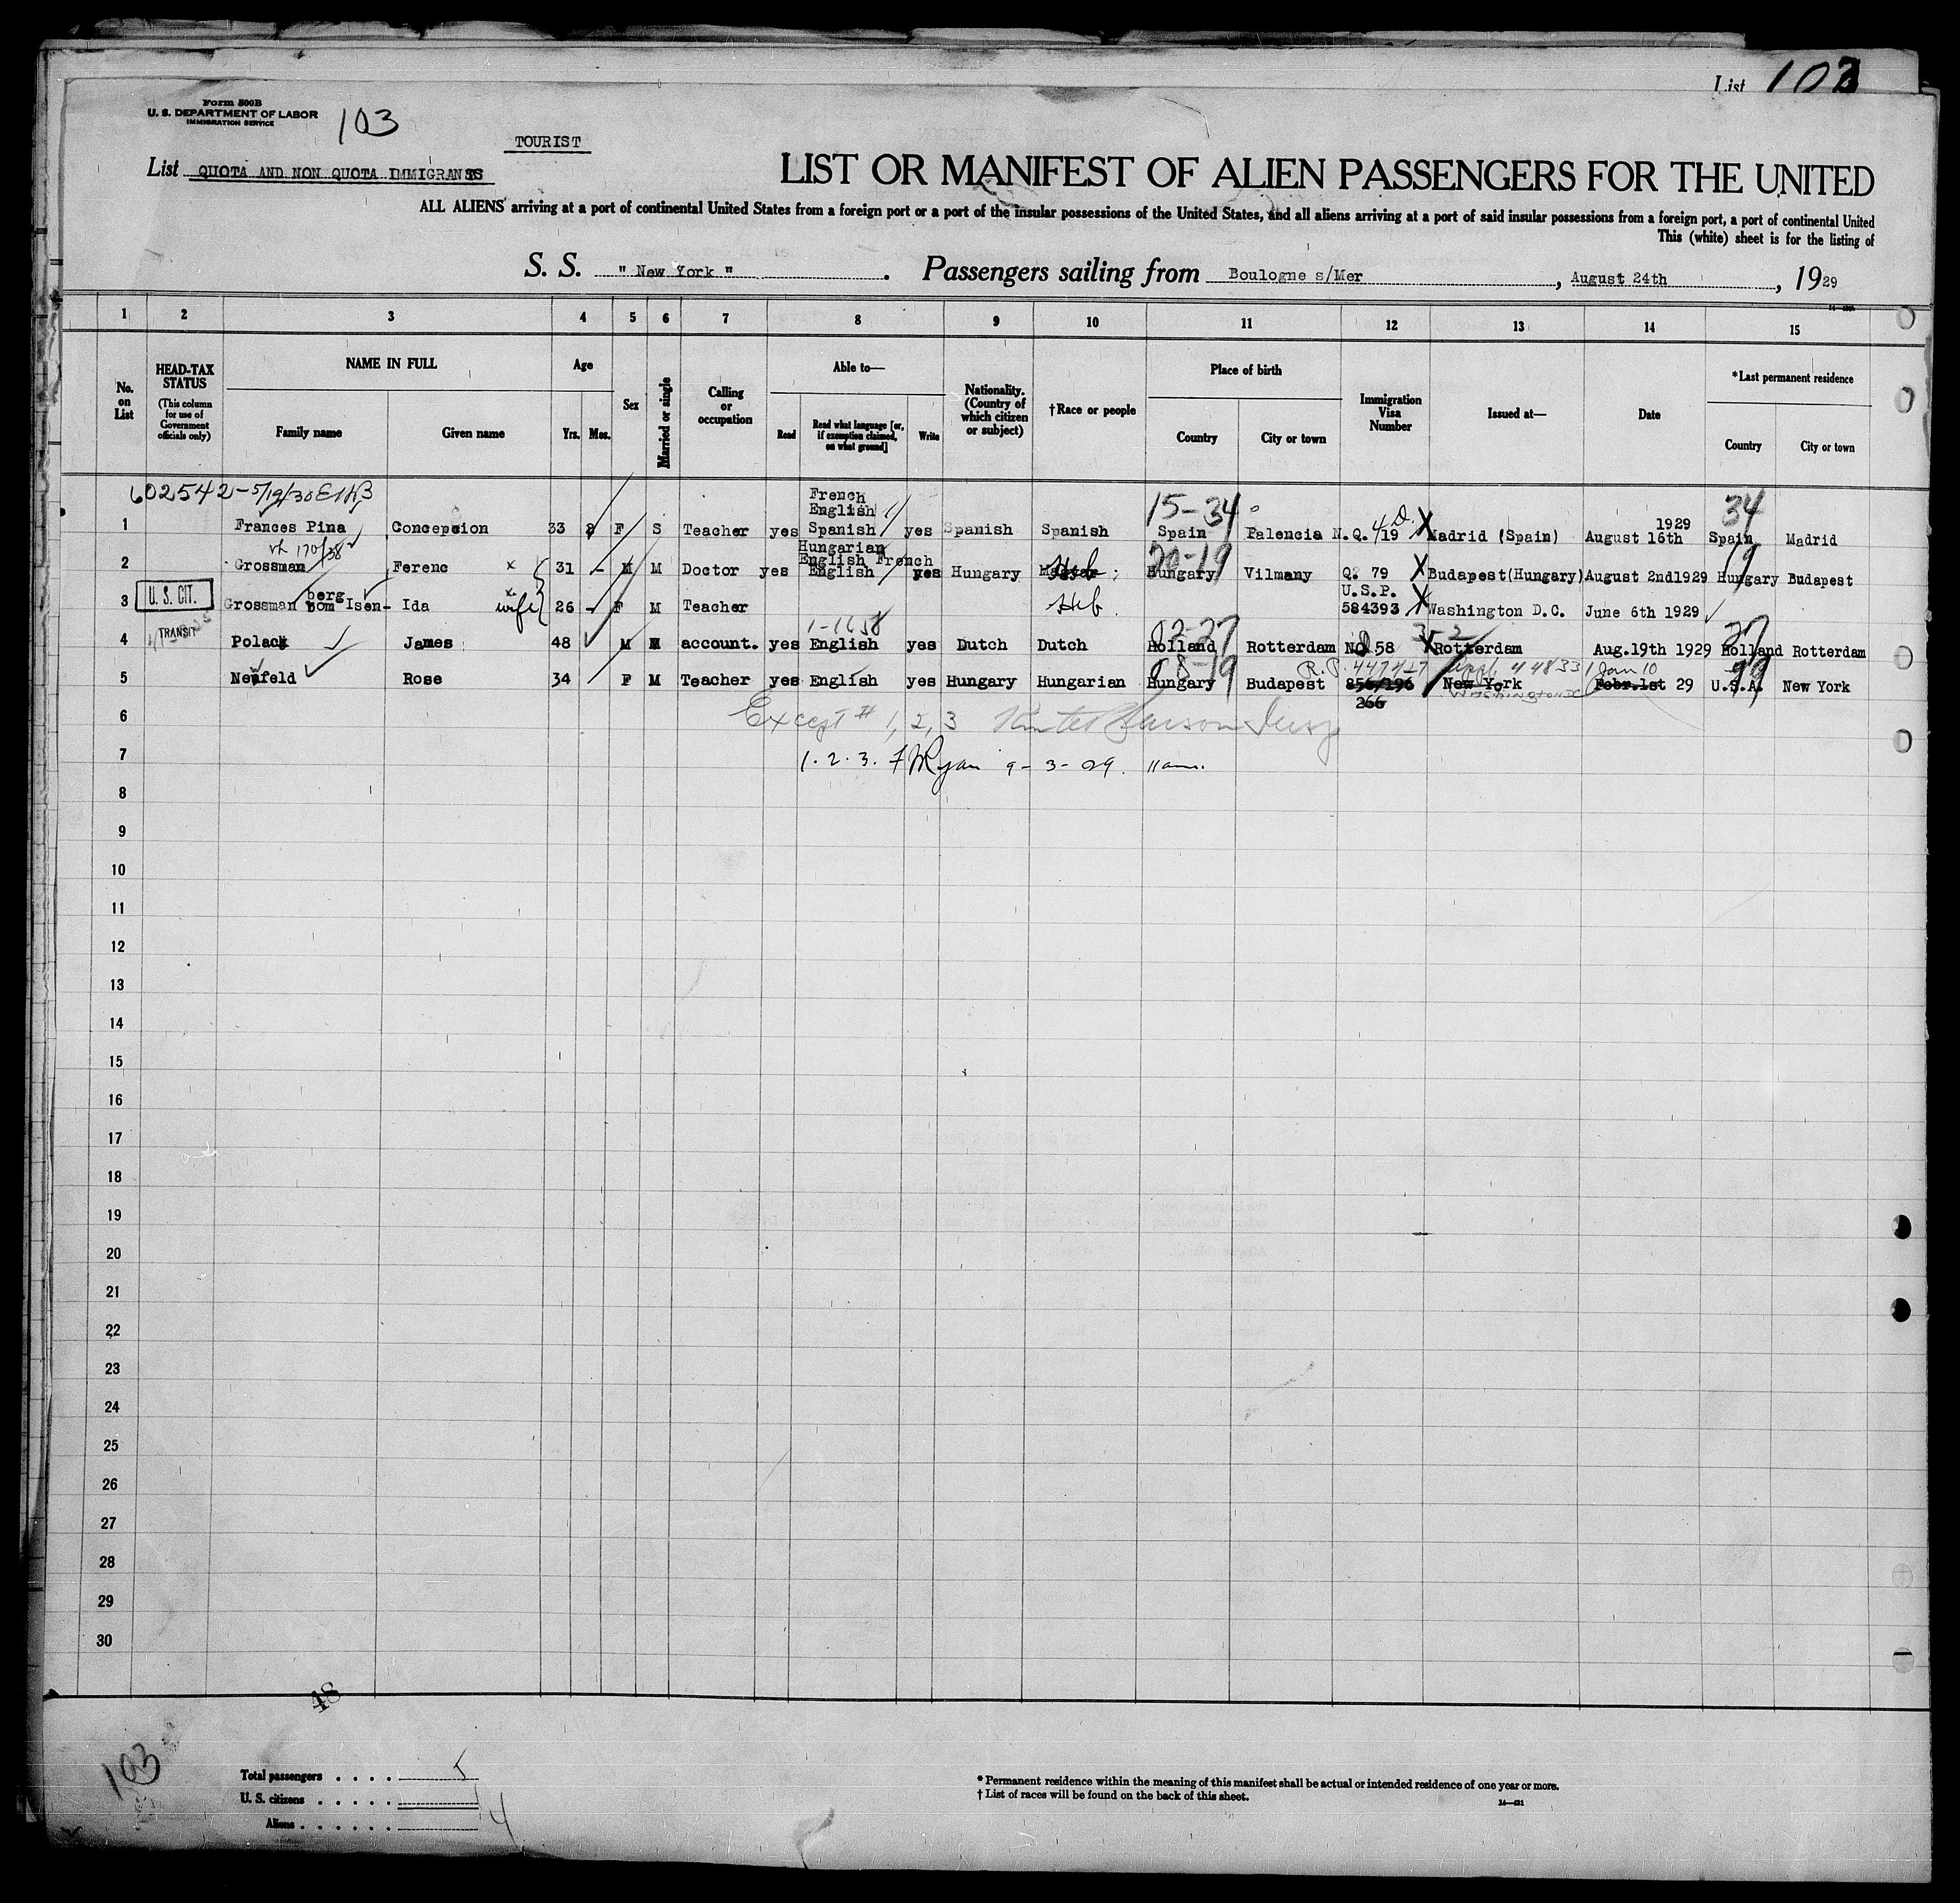 List 103
Form 500B
U. S. DEPARTMENT OF LABOR
IMMIGRATION SERVICE
103
TOURIST
List QUOTA AND NON QUOTA IMMIGRANTS
LIST OR MANIFEST OF ALIEN PASSENGERS FOR THE UNITED
ALL ALIENS arriving at a port of continental United States from a foreign port or a port of the insular possessions of the United States, and all aliens arriving at a port of said insular possessions from a foreign port, a port of continental United
This (white) sheet is for the listing of
S. S. " New York " . Passengers sailing from Boulogne s/Mer , August 24th , 1929
1 2 3 4 5 6 7 8 9 10 11 12 13 14 15
No. on List
HEAD-TAX STATUS
(This column for use of Government officials only)
NAME IN FULL
Family name Given name
Age
Yrs. Mos.
Sex
Married or single
Calling or occupation
Able to—
Read
Read what language [or, if exemption claimed, on what ground]
Write
Nationality. (Country of which citizen or subject)
†Race or people
Place of birth
Country City or town
Immigration Visa Number
Issued at—
Date
*Last permanent residence
Country City or town
602542-5/19/30
French
English
15-34 34
1 Frances Pina Concepcion 33 F S Teacher yes Spanish yes Spanish Spanish Spain Palencia N.Q. 4/19 Madrid (Spain) August 16th 1929 Spain Madrid
Hungarian
English French
20-19 19
2 Grossman Ferenc x 31 - M M Doctor yes English yes Hungary Heb ; Hungary Vilmany Q. 79 Budapest(Hungary) August 2nd1929 Hungary Budapest
U. S. CIT.
berg
U.S.P.
3 Grossman Isen- Ida wife 26 - F M Teacher Heb. 584393 Washington D.C. June 6th 1929
TRANSIT
4 Polack James 48 M account. yes English yes Dutch Dutch Holland Rotterdam 58 Rotterdam Aug.19th 1929 Holland Rotterdam
R.P. 447427 Jan 10
5 Neufeld Rose 34 F M Teacher yes English yes Hungary Hungarian Hungary Budapest 856/196 New York Febr.1st 29 U.S.A. New York
266
Washington
6 Except # 1, 2, 3
7 1. 2. 3. Ryan 9-3-29. 11am.
8
9
10
11
12
13
14
15
16
17
18
19
20
21
22
23
24
25
26
27
28
29
30
48
103
Total passengers . . . . 5
U. S. citizens . . . . . 1
Aliens . . . . . . 4
* Permanent residence within the meaning of this manifest shall be actual or intended residence of one year or more.
† List of races will be found on the back of this sheet.